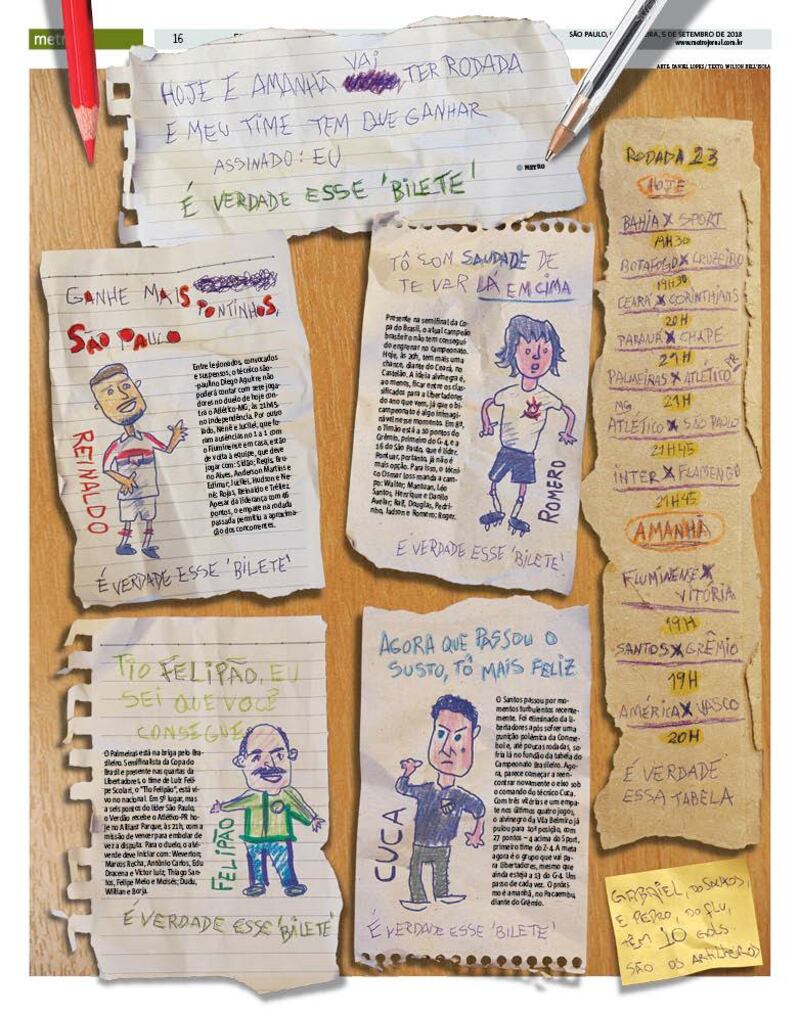 metr
16
SÃO PAULO, 5 DE SETEMBRO DE 2018
www.metrojornal.com.br
ARTE: DANIEL LOPES / TEXTO: WILSON DELL'ISOLA
HOJE E AMANHÃ VAI TER RODADA
E MEU TIME TEM QUE GANHAR
ASSINADO: EU
© METRO
É VERDADE ESSE 'BILETE'
GANHE MAIS
PONTINHOS,
SÃO PAULO
Entre lesionados, convocados
e suspensos, o técnico são-
paulino Diego Aguirre não
poderá contar com sete joga-
dores no duelo de hoje con-
tra o Atlético-MG, às 21h45,
no Independência. Por outro
lado, Nenê e Jucilei, que fo-
ram ausências no 1 a 1 com
o Fluminense em casa, estão
de volta à equipe, que deve
jogar com: Sidão; Régis, Bru-
no Alves, Anderson Martins e
Edimar; Jucilei, Hudson e Ne-
nê; Rojas, Reinaldo e Tréllez.
Apesar da liderança com 46
pontos, o empate na rodada
passada permitiu a aproxima-
ção dos concorrentes.
REINALDO
É VERDADE ESSE 'BILETE'
TÔ COM SAUDADE DE
TE VER LÁ EM CIMA
Presente na semifinal da Co-
pa do Brasil, o atual campeão
brasileiro não tem consegui-
do engrenar no campeonato.
Hoje, às 20h, tem mais uma
chance, diante do Ceará, no
Castelão. A ideia alvinegra é,
ao menos, ficar entre os clas-
sificados para a Libertadores
do ano que vem, já que o bi-
campeonato é algo inimagi-
nável nesse momento. Em 8º,
o Timão está a 10 pontos do
Grêmio, primeiro do G-4, e a
16 do São Paulo, que é líder.
Pontuar, portanto, já não é
mais opção. Para isso, o técni-
co Osmar Loss manda a cam-
po: Walter; Mantuan, Léo
Santos, Henrique e Danilo
Avelar; Ralf, Douglas, Pedri-
nho, Jadson e Romero; Roger.
ROMERO
É VERDADE ESSE 'BILETE'
TIO FELIPÃO, EU
SEI QUE VOCÊ
CONSEGUE
O Palmeiras está na briga pelo Bra-
sileiro. Semifinalista da Copa do
Brasil e presente nas quartas da
Libertadores, o time de Luiz Feli-
pe Scolari, o "Tio Felipão", está vi-
vo no nacional. Em 5º lugar, mas
a seis pontos do líder São Paulo,
o Verdão recebe o Atlético-PR ho-
je no Allianz Parque, às 21h, com a
missão de vencer para embolar de
vez a disputa. Para o duelo, o alvi-
verde deve iniciar com: Weverton;
Marcos Rocha, Antônio Carlos, Edu
Dracena e Victor Luiz; Thiago San-
tos, Felipe Melo e Moisés; Dudu,
Willian e Borja.
FELIPÃO
É VERDADE ESSE 'BILETE'
AGORA QUE PASSOU O
SUSTO, TÔ MAIS FELIZ
O Santos passou por mo-
mentos turbulentos recente-
mente. Foi eliminado da Li-
bertadores após sofrer uma
punição polêmica da Conme-
bol e, até poucas rodadas, so-
fria no fundão da tabela do
Campeonato Brasileiro. Ago-
ra, parece começar a reen-
contrar novamente o eixo sob
o comando do técnico Cuca.
Com três vitórias e um empa-
te nos últimos quatro jogos,
o alvinegro da Vila Belmiro já
pulou para 10ª posição, com
27 pontos – 4 acima do Sport,
primeiro time do Z-4. A meta
agora é o grupo que vai pa-
ra Libertadores, mesmo que
ainda esteja a 13 do G-4. Um
passo de cada vez. O próxi-
mo é amanhã, no Pacaembu,
diante do Grêmio.
CUCA
É VERDADE ESSE 'BILETE'
RODADA 23
HOJE
BAHIA X SPORT
19H30
BOTAFOGO X CRUZEIRO
19H30
CEARÁ X CORINTHIANS
20H
PARANÁ X CHAPE
21H
PALMEIRAS X ATLÉTICO PR
21H
MG
ATLÉTICO X SÃO PAULO
21H45
INTER X FLAMENGO
21H45
AMANHÃ
FLUMINENSE X
VITÓRIA
19H
SANTOS X GRÊMIO
19H
AMÉRICA X VASCO
20H
É VERDADE
ESSA TABELA
GABRIEL, DO SANTOS,
E PEDRO, DO FLU,
TÊM 10 GOLS.
SÃO OS ARTILHEIROS